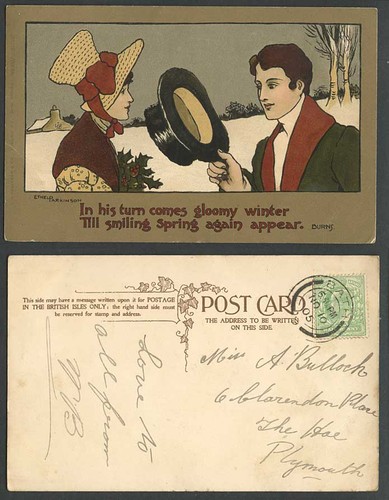 ETHEL PARKINSON
In his turn comes gloomy winter
Till smiling Spring again appear. BURNS.
This side may have a message written upon it for POSTAGE
IN THE BRITISH ISLES ONLY: the right hand side must
be reserved for stamp and address.
POST CARD
THE ADDRESS TO BE WRITTEN
ON THIS SIDE.
BATH
05
Love to
all from
MB
Miss A. Bulloch
6 Clarendon Place
The Hoe
Plymouth